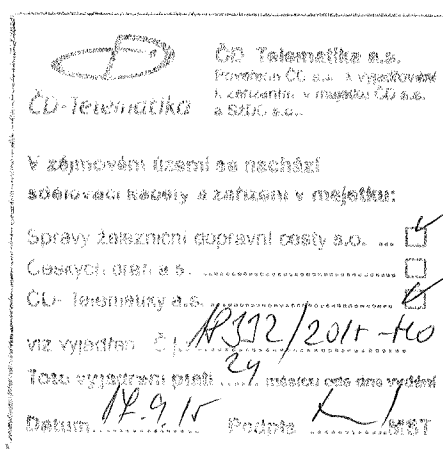 ČD-Telematika
ČD Telematika a.s.
Pověřen ČD a.s. k vyjadřování
k zařízením v majetku ČD a.s.
a SŽDC s.o.
V zájmovém území se nachází
sdělovací kabely a zařízení v majetku:
Správy železniční dopravní cesty s.o. ...
Českých drah a.s. ...
ČD- Telematiky a.s. ...
viz vyjádření Č.j. /2015
Toto vyjádření platí 24 měsíců ode dne vydání
Datum 17.9.15 Podpis MBT